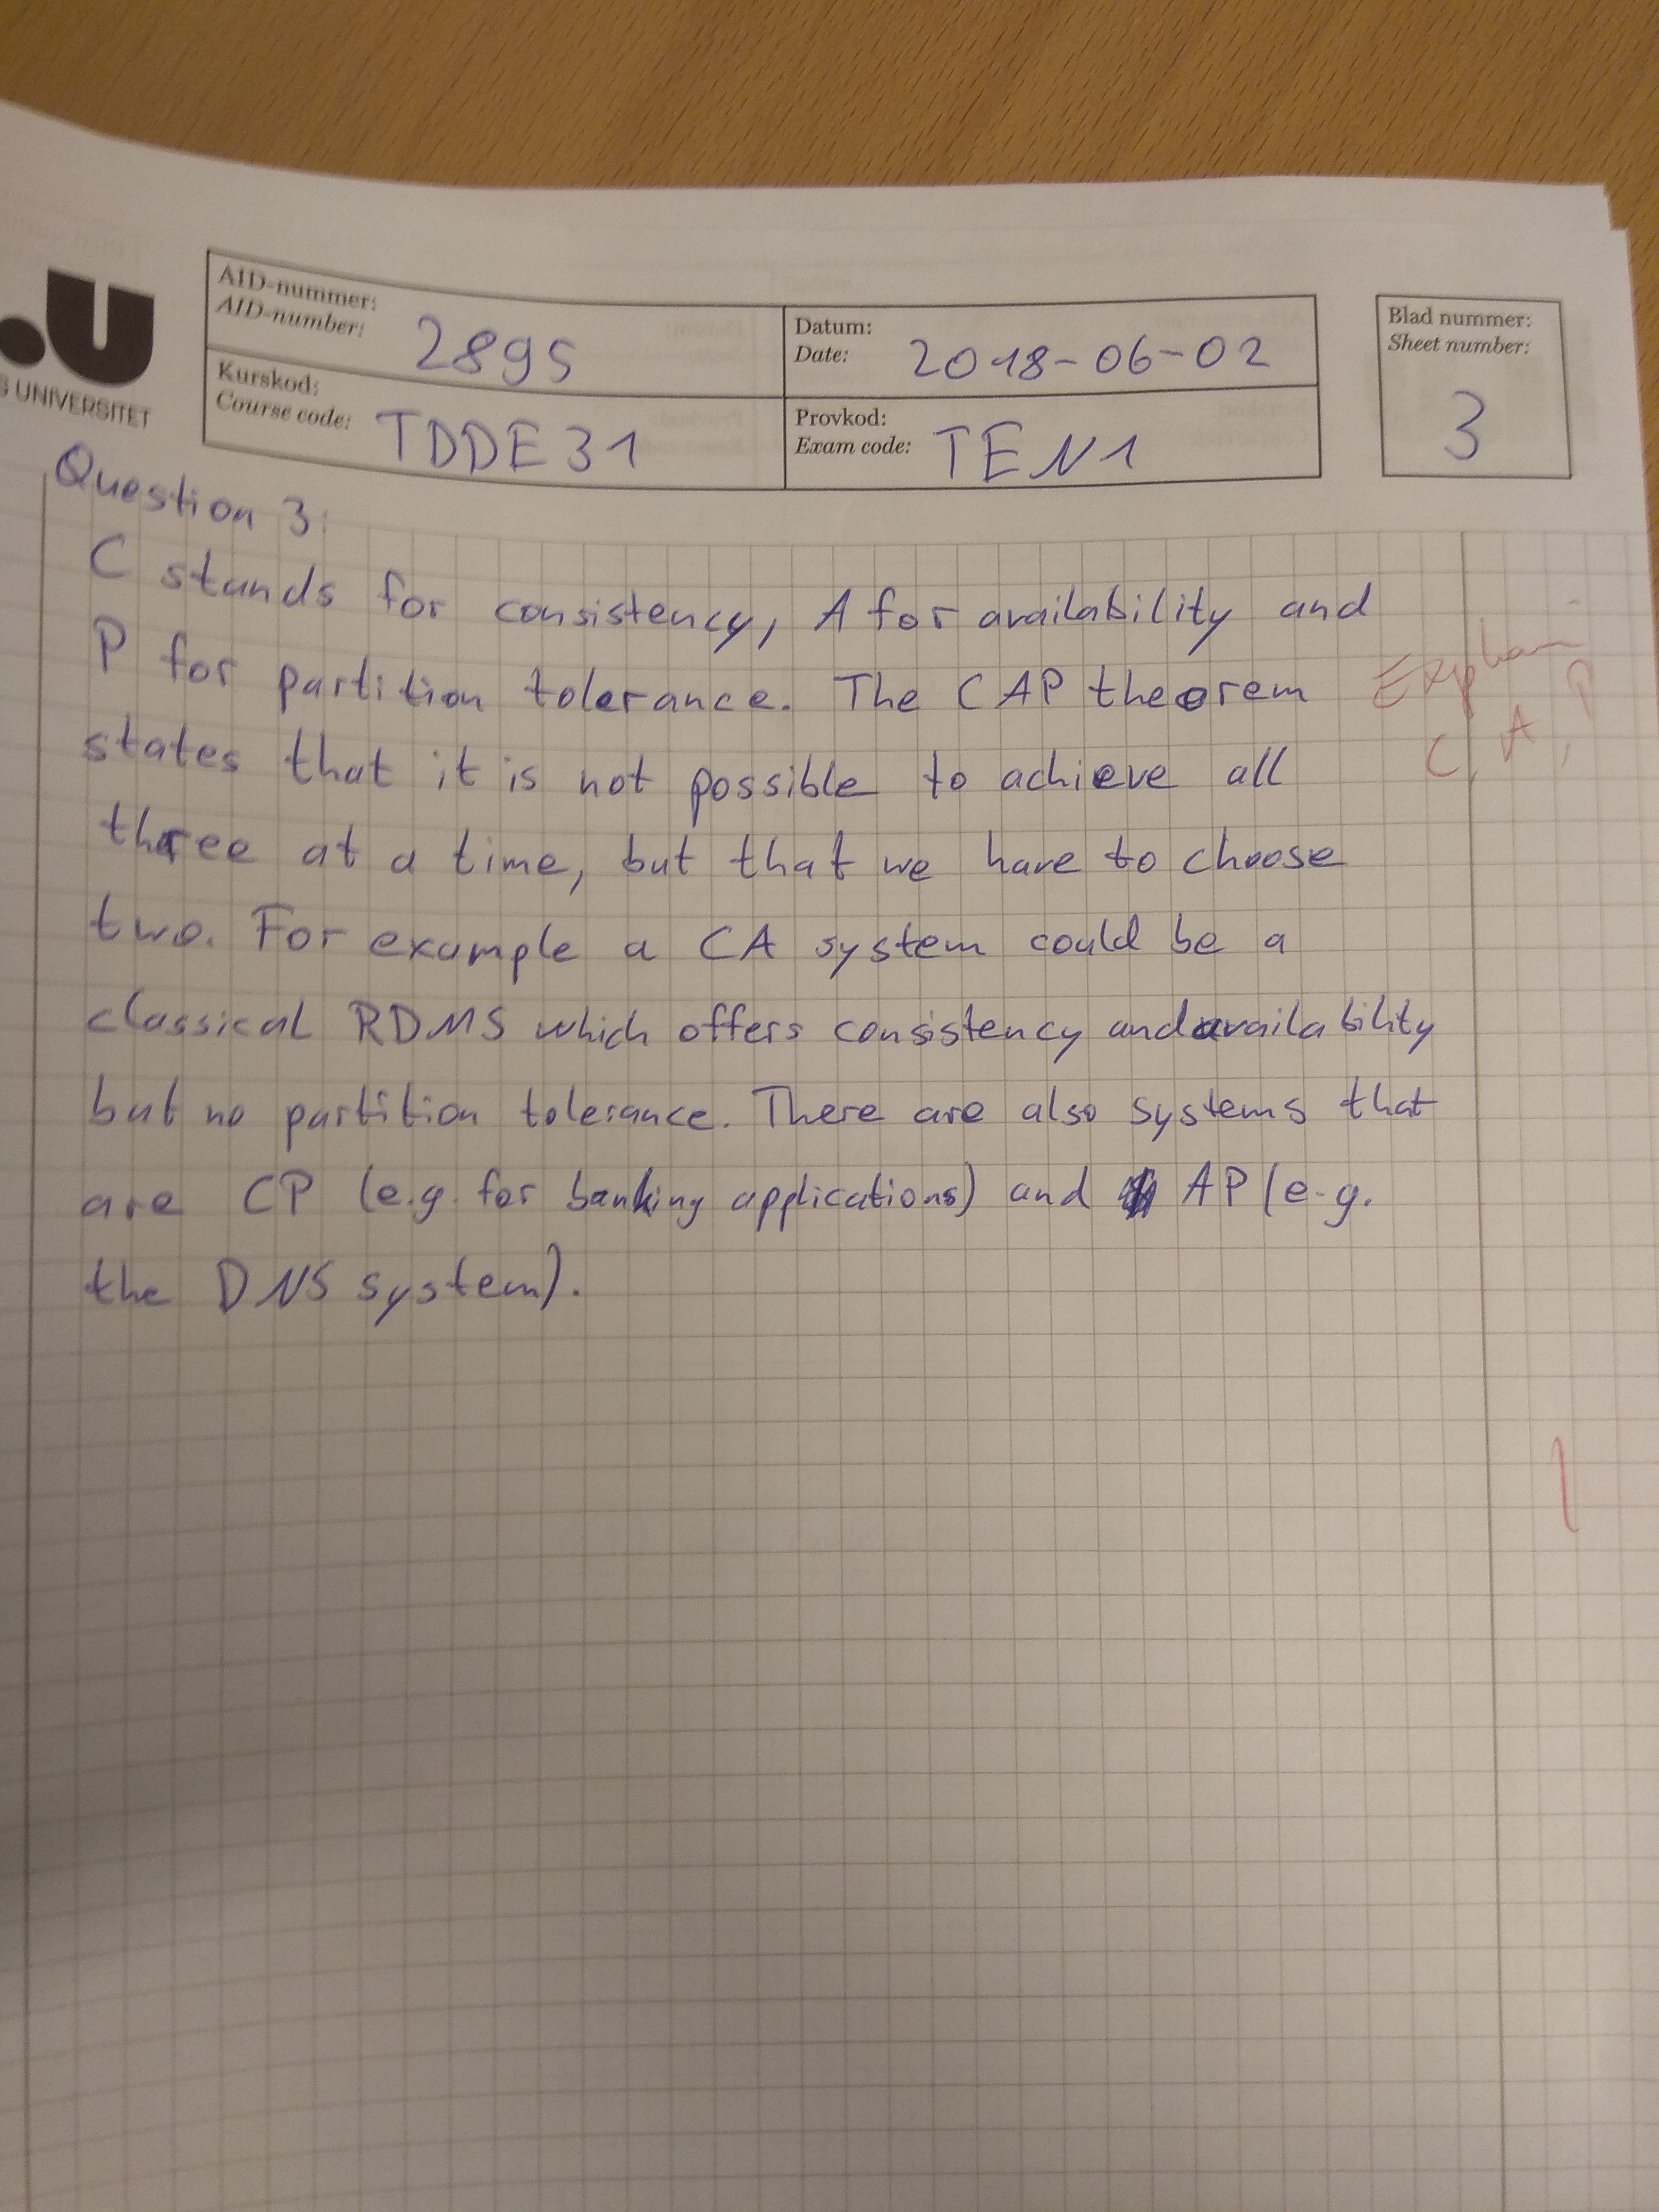 .U
S UNIVERSITET
AID-nummer:
AID-number: 2895
Datum:
Date: 2018-06-02
Blad nummer:
Sheet number:
3
Kurskod:
Course code: TDDE31
Provkod:
Exam code: TEN1
Question 3:
C stands for consistency, A for availability and
P for partition tolerance. The CAP theorem
Explain
C, A, P
states that it is not possible to achieve all
three at a time, but that we have to choose
two. For example a CA system could be a
classical RDMS which offers consistency and availability
but no partition tolerance. There are also systems that
are CP (e.g. for banking applications) and AP (e.g.
the DNS system).
1